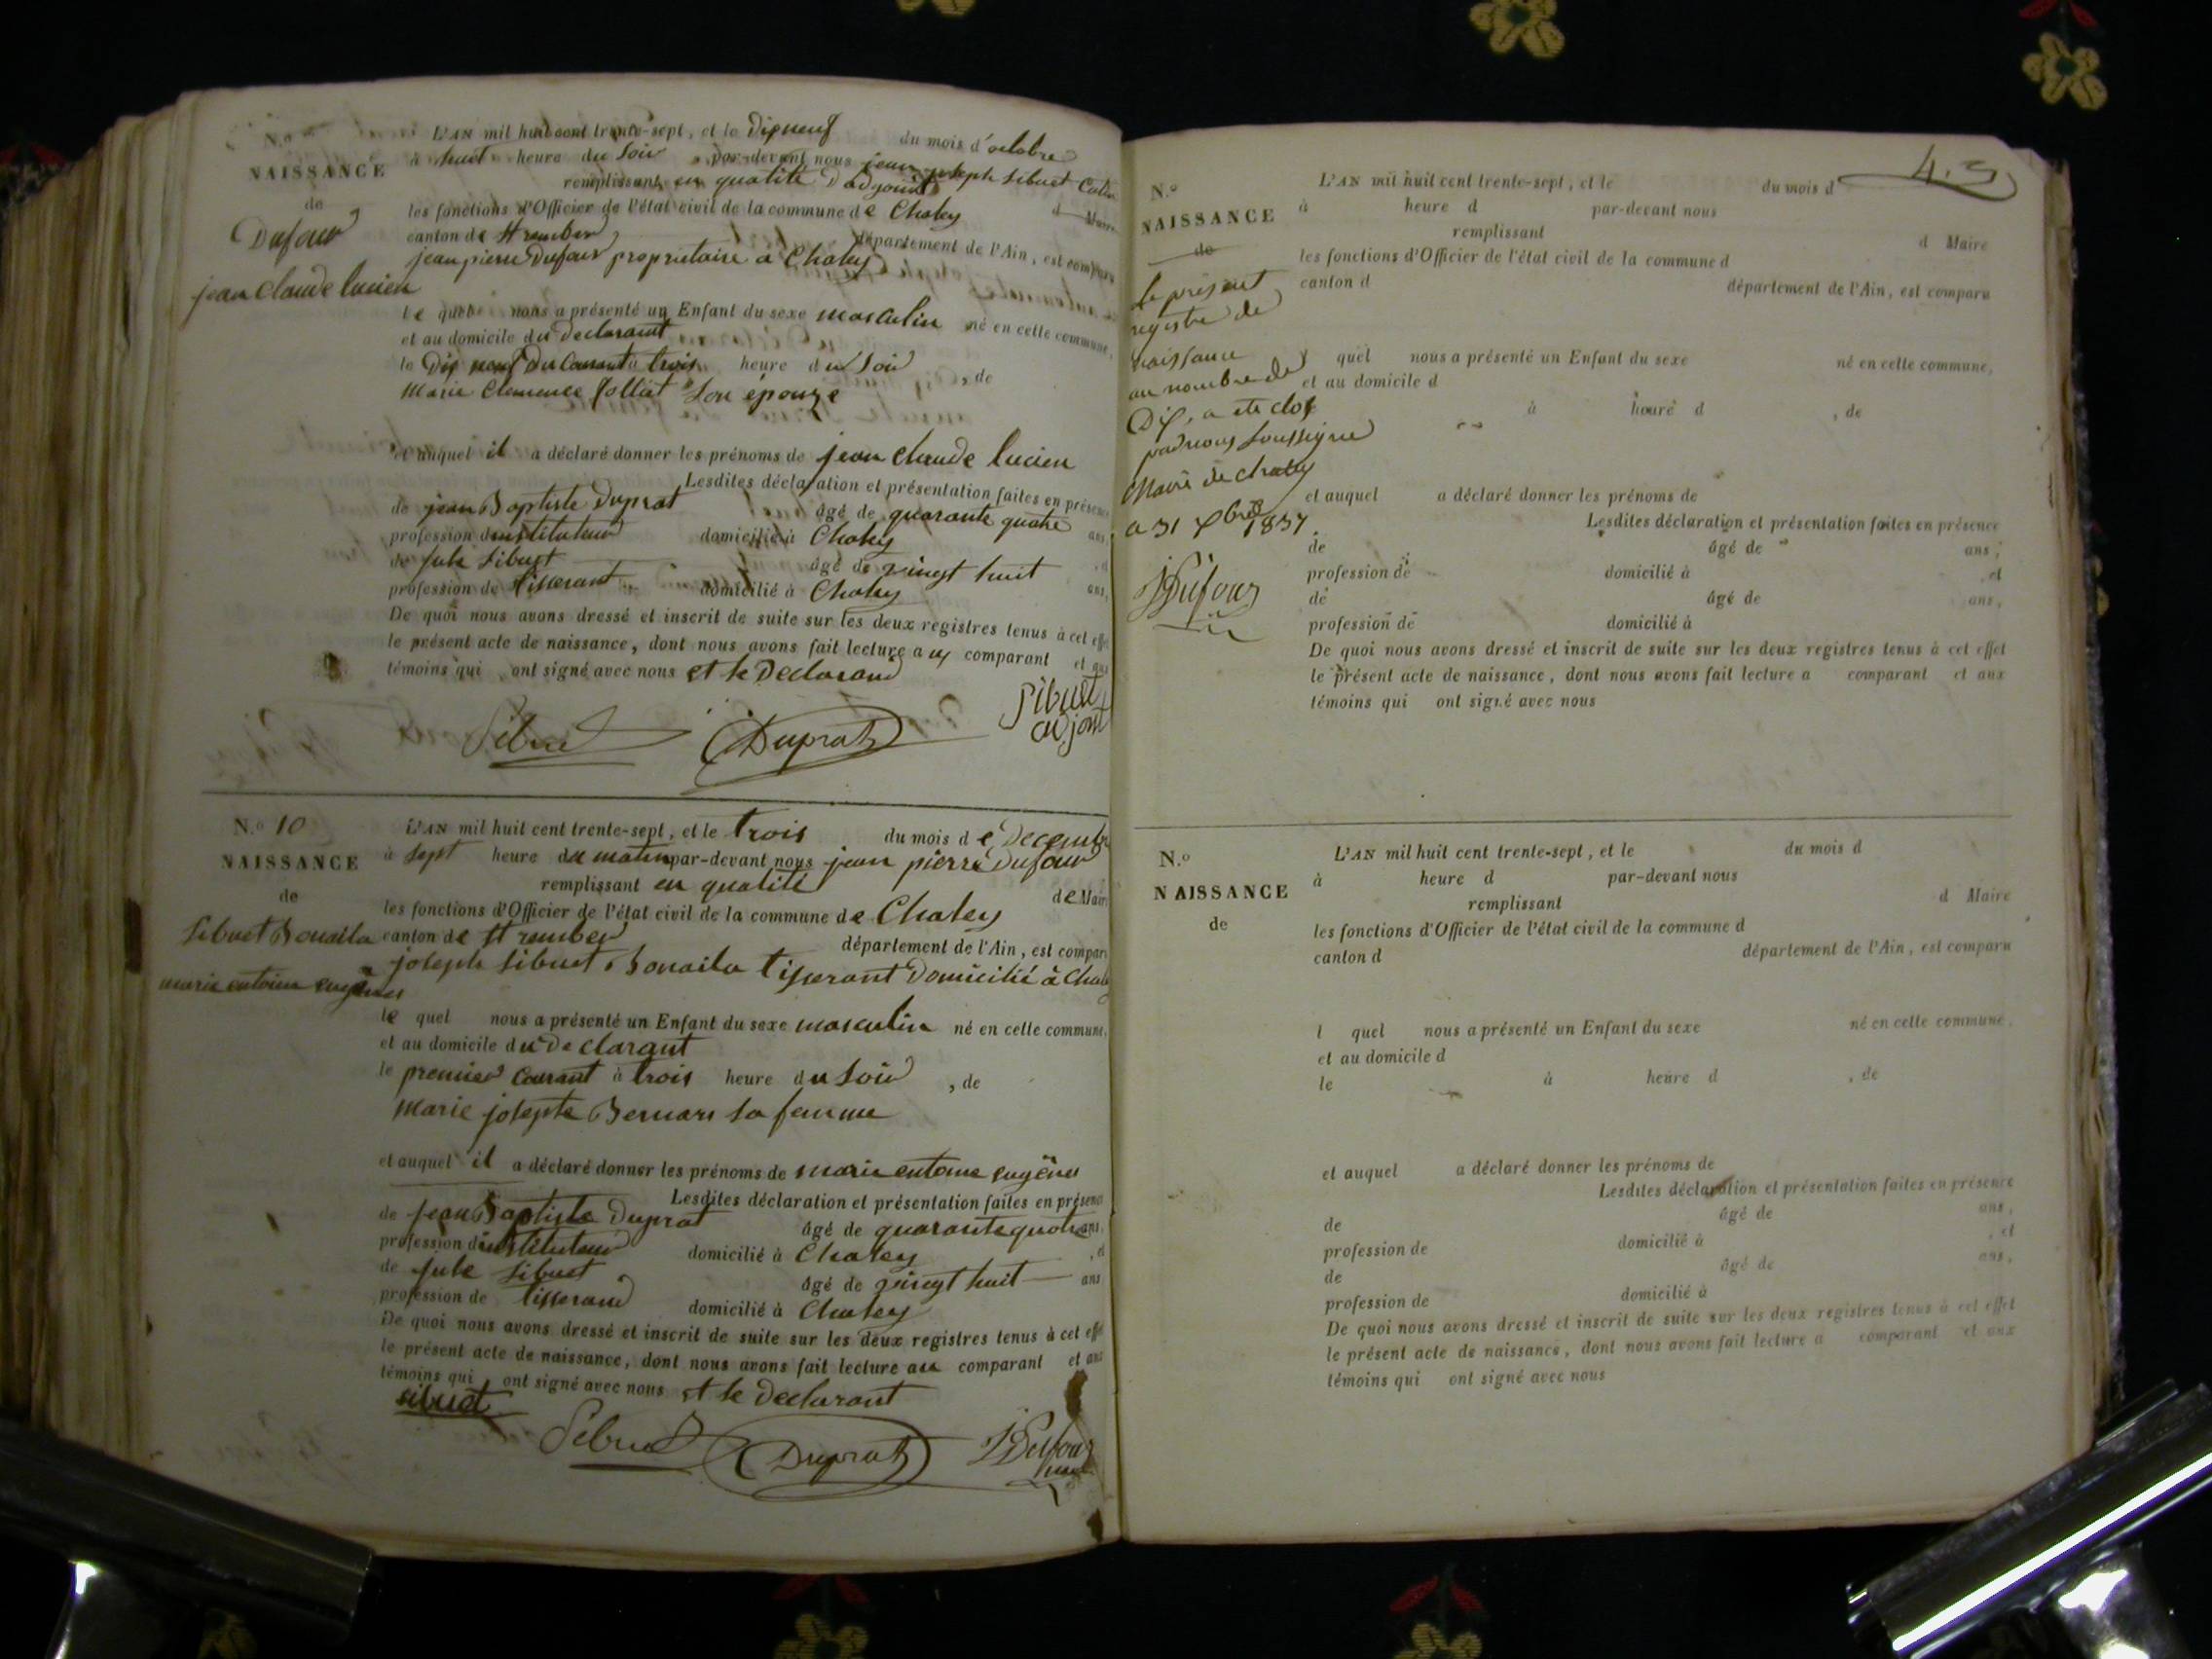 N.º
NAISSANCE
de
Dufour
jean Claude lucien
L'AN mil huit cent trente-sept, et le Dixneuf du mois d'octobre
à huit heure du Soir par-devant nous jean joseph Sibuet
remplissant en qualité d'adjoint d Maire
les fonctions d'Officier de l'état civil de la commune de Chaley
canton de St rembert département de l'Ain, est comparu
jean pierre Dufour propriétaire a Chaley
le quel nous a présenté un Enfant du sexe masculin né en cette commune,
et au domicile du Declarant
le Dix neuf Du Courant à trois heure du Soir , de
Marie Clemence Jolliet Son épouze
et auquel il a déclaré donner les prénoms de jean Claude lucien
Lesdites déclaration et présentation faites en présence
de jean Baptiste Duprat âgé de quarante quatre ans,
profession d'instituteur domicilié à Chaley
de Jule Sibuet âgé de vingt huit ans,
profession de tisserant domicilié à Chaley
De quoi nous avons dressé et inscrit de suite sur les deux registres tenus à cet effet
le présent acte de naissance, dont nous avons fait lecture aux comparant et aux
témoins qui ont signé avec nous et le Declarant
Sibuet Duprat Sibuet
adjoint
N.º 10
NAISSANCE
de
Sibuet Bonaila
marie entoine eugènes
L'AN mil huit cent trente-sept, et le trois du mois de Decembre
à Sept heure du matin par-devant nous jean pierre Dufour
remplissant en qualité de Maire
les fonctions d'Officier de l'état civil de la commune de Chaley
canton de St rembert département de l'Ain, est comparu
joseph Sibuet Bonaila tisserant Domicilié à Chaley
le quel nous a présenté un Enfant du sexe masculin né en cette commune,
et au domicile du Declarant
le premier Courant à trois heure du Soir , de
Marie josepte Bernars Sa femme
et auquel il a déclaré donner les prénoms de marie entoine eugènes
Lesdites déclaration et présentation faites en présence
de jean Baptiste Duprat âgé de quarante quatre ans,
profession d'instituteur domicilié à Chaley , et
de Jule Sibuet âgé de vingt huit ans
profession de tisserand domicilié à Chaley
De quoi nous avons dressé et inscrit de suite sur les deux registres tenus à cet effet
le présent acte de naissance, dont nous avons fait lecture au comparant et aux
témoins qui ont signé avec nous et le Declarant
sibuet
Sibuet Duprat JPDufour
maire
43
N.º
NAISSANCE
de
le présent
registre de
naissance
au nombre de
Dix, a été clos
par nous Soussigné
Maire de Chaley
a 31 Xbre 1837.
JPDufour
L'AN mil huit cent trente-sept, et le du mois d
à heure d par-devant nous
remplissant d Maire
les fonctions d'Officier de l'état civil de la commune d
canton d département de l'Ain, est comparu
quel nous a présenté un Enfant du sexe né en cette commune,
et au domicile d
à heure d , de
et auquel a déclaré donner les prénoms de
Lesdites déclaration et présentation faites en présence
de âgé de ans,
profession de domicilié à , et
de âgé de ans,
profession de domicilié à
De quoi nous avons dressé et inscrit de suite sur les deux registres tenus à cet effet
le présent acte de naissance, dont nous avons fait lecture a comparant et aux
témoins qui ont signé avec nous
N.º
NAISSANCE
de
L'AN mil huit cent trente-sept, et le du mois d
à heure d par-devant nous
remplissant d Maire
les fonctions d'Officier de l'état civil de la commune d
canton d département de l'Ain, est comparu
l quel nous a présenté un Enfant du sexe né en cette commune,
et au domicile d
le à heure d , de
et auquel a déclaré donner les prénoms de
Lesdites déclaration et présentation faites en présence
de âgé de ans,
profession de domicilié à , et
de âgé de ans,
profession de domicilié à
De quoi nous avons dressé et inscrit de suite sur les deux registres tenus à cet effet
le présent acte de naissance, dont nous avons fait lecture a comparant et aux
témoins qui ont signé avec nous